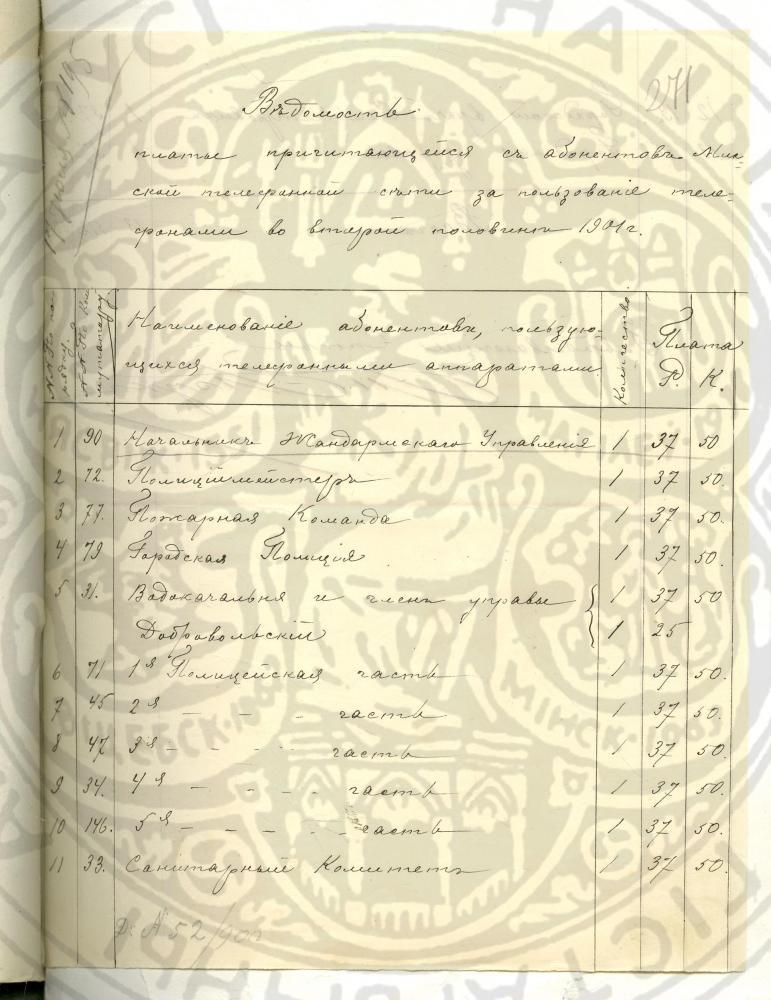 271
Вѣдомость
платы причитающейся съ абонентовъ Мин-
ской телефонной сѣти за пользованіе теле-
фонами во второй половинѣ 1901 г.
Наименованіе абонентовъ, пользую-
щихся телефонными аппаратами
Количество.
Плата
Р. К.
1 90 Начальникъ Жандармскаго Управленія 1 37 50
2 72. Полиціймейстеръ 1 37 50.
3 77. Пожарная Команда 1 37 50.
4 79 Городская Полиція 1 37 50.
5 31. Водокачальня и членъ управы 1 37 50
Добровольскій 1 25
6 71 1я Полицейская часть 1 37 50.
7 45 2я - - - часть 1 37 50.
8 47 3я - - - - часть 1 37 50.
9 34. 4я - - - - часть 1 37 50.
10 146. 5я - - - - - часть 1 37 50.
11 33. Санитарный Комитетъ 1 37 50.